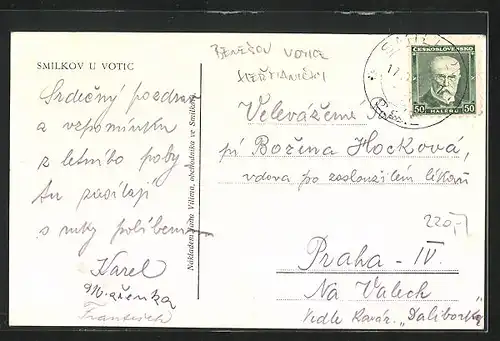 SMILKOV U VOTIC
BENEŠOV VOTICE
HEŘMANIČKY
ČESKOSLOVENSKO
50 HALÉŘŮ 50
Srdečný pozdrav
a vzpomínku
z letního poby-
tu zasílají
s ruky políbením
Karel
Mařenka
František
Nákladem Josefa Viléma, obchodníka ve Smilkově
Velevážené
pí Božena Hocková,
vdova po zasloužilém lékaři
220,-
Praha - IV.
Na Valech
Vedle Kavár. „Daliborky"